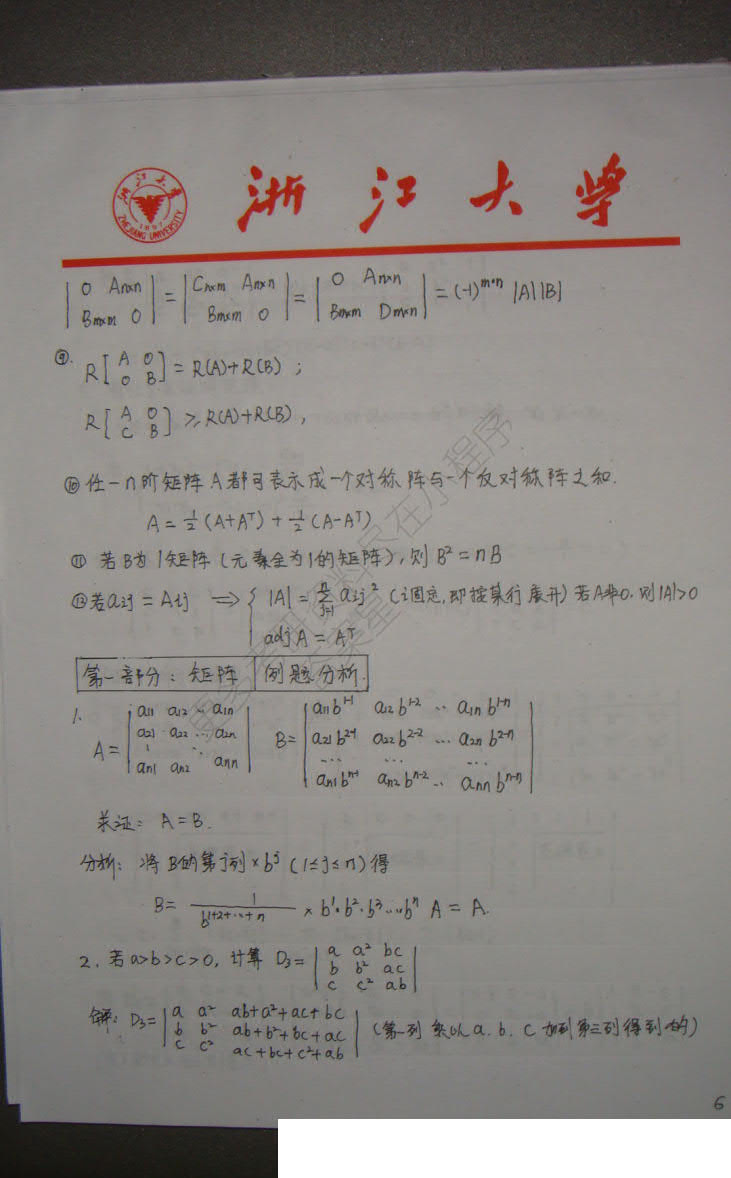 浙江大学
浙江大学
ZHEJIANG UNIVERSITY
1897
| 0 An×n ; Bm×m 0 | = | Cn×m An×n ; Bm×m 0 | = | 0 An×n ; Bm×m Dm×n | = (-1)^{m·n} |A||B|
⑨. R[ A 0 ; 0 B ] = R(A)+R(B) ;
R[ A 0 ; C B ] ≥ R(A)+R(B),
⑩ 任一n阶矩阵A都可表示成一个对称阵与一个反对称阵之和.
A = ½(A+Aᵀ) + ½(A-Aᵀ)
⑪ 若B为1矩阵(元素全为1的矩阵),则 B² = nB
⑫ 若aij = Aij ⟹ { |A| = Σ_{j=1}^{n} aij² (i固定,即按某行展开) 若A非0.则|A|>0
adj A = Aᵀ
第一部分:矩阵 例题分析.
1. A = | a11 a12 ··· a1n ; a21 a22 ··· a2n ; ⋮ ⋱ ; an1 an2 ann | B = | a11b^{1-1} a12b^{1-2} ··· a1nb^{1-n} ; a21b^{2-1} a22b^{2-2} ··· a2nb^{2-n} ; ··· ··· ··· ; an1b^{n-1} an2b^{n-2} ··· annb^{n-n} |
求证: A = B.
分析: 将B的第j列×b^j (1≤j≤n)得
B = 1/b^{1+2+···+n} × b¹·b²·b³···bⁿ A = A.
2. 若a>b>c>0, 计算 D₃ = | a a² bc ; b b² ac ; c c² ab |
解: D₃ = | a a² ab+a²+ac+bc ; b b² ab+b²+bc+ac ; c c² ac+bc+c²+ab | (第一列乘以a.b.c加到第三列得到的)
6
更多考研资料尽在小程序
答案星